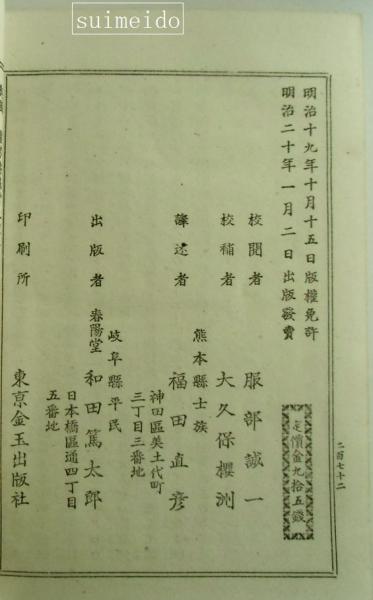 suimeido
明治十九年十月十五日版權免許
明治二十年一月二日出版發賣
定價金九拾五錢
校閲者 服部誠一
校補者 大久保櫻洲
熊本縣士族
譯述者 福田直彦
神田區美土代町
三丁目三番地
岐阜縣平民
出版者 春陽堂 和田篤太郎
日本橋區通四丁目
五番地
印刷所 東京金玉出版社
二百七十二